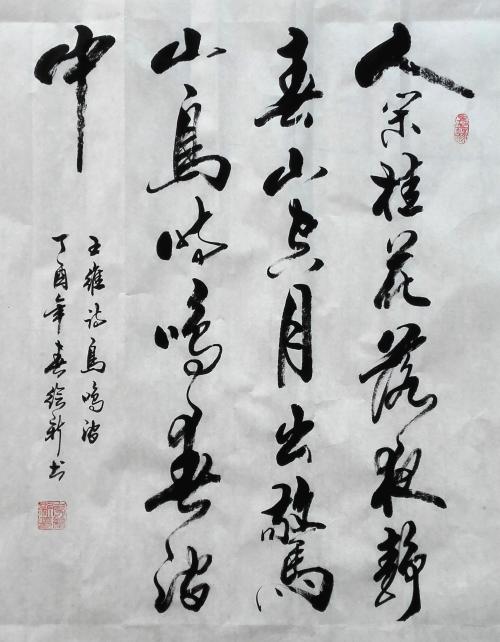 人閑桂花落夜靜
春山空月出驚
山鳥時鳴春澗
中
王維詩鳥鳴澗
丁酉年春繪新書